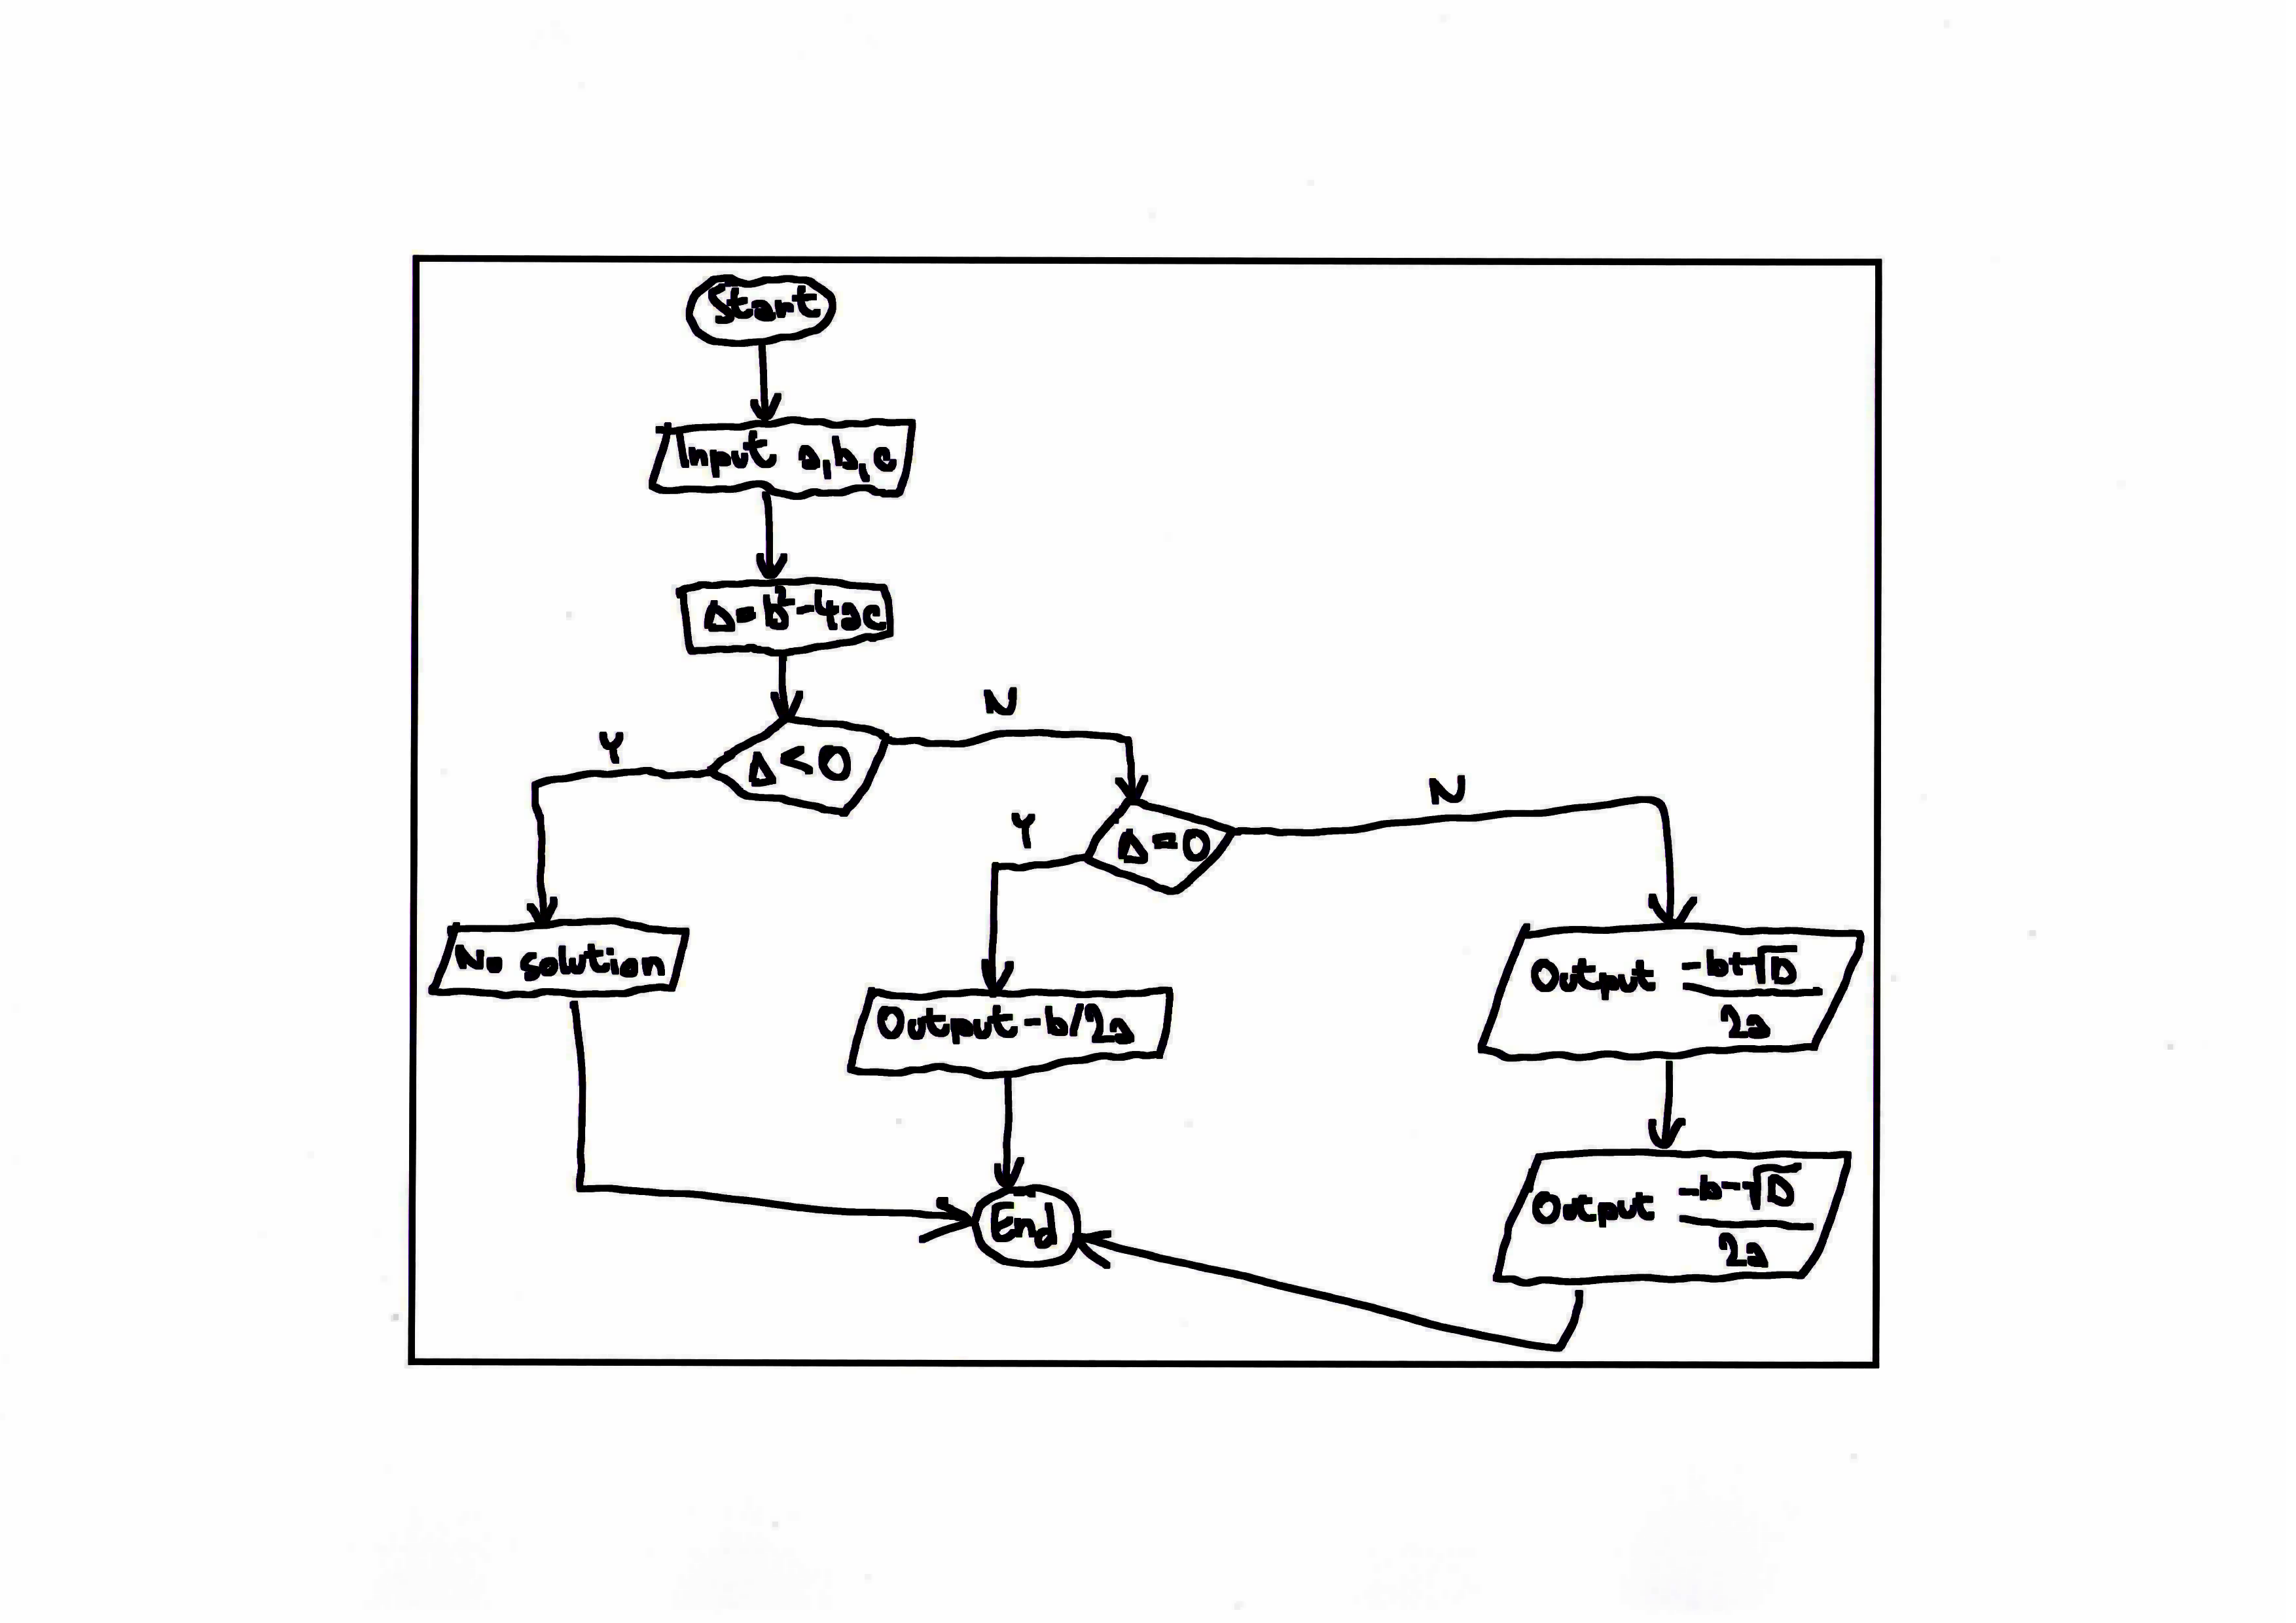 Start
Input a,b,c
Δ=b²-4ac
N
Y
Δ<0
N
Y
Δ=0
No solution
Output -b/2a
Output -b+√D
2a
Output -b-√D
2a
End